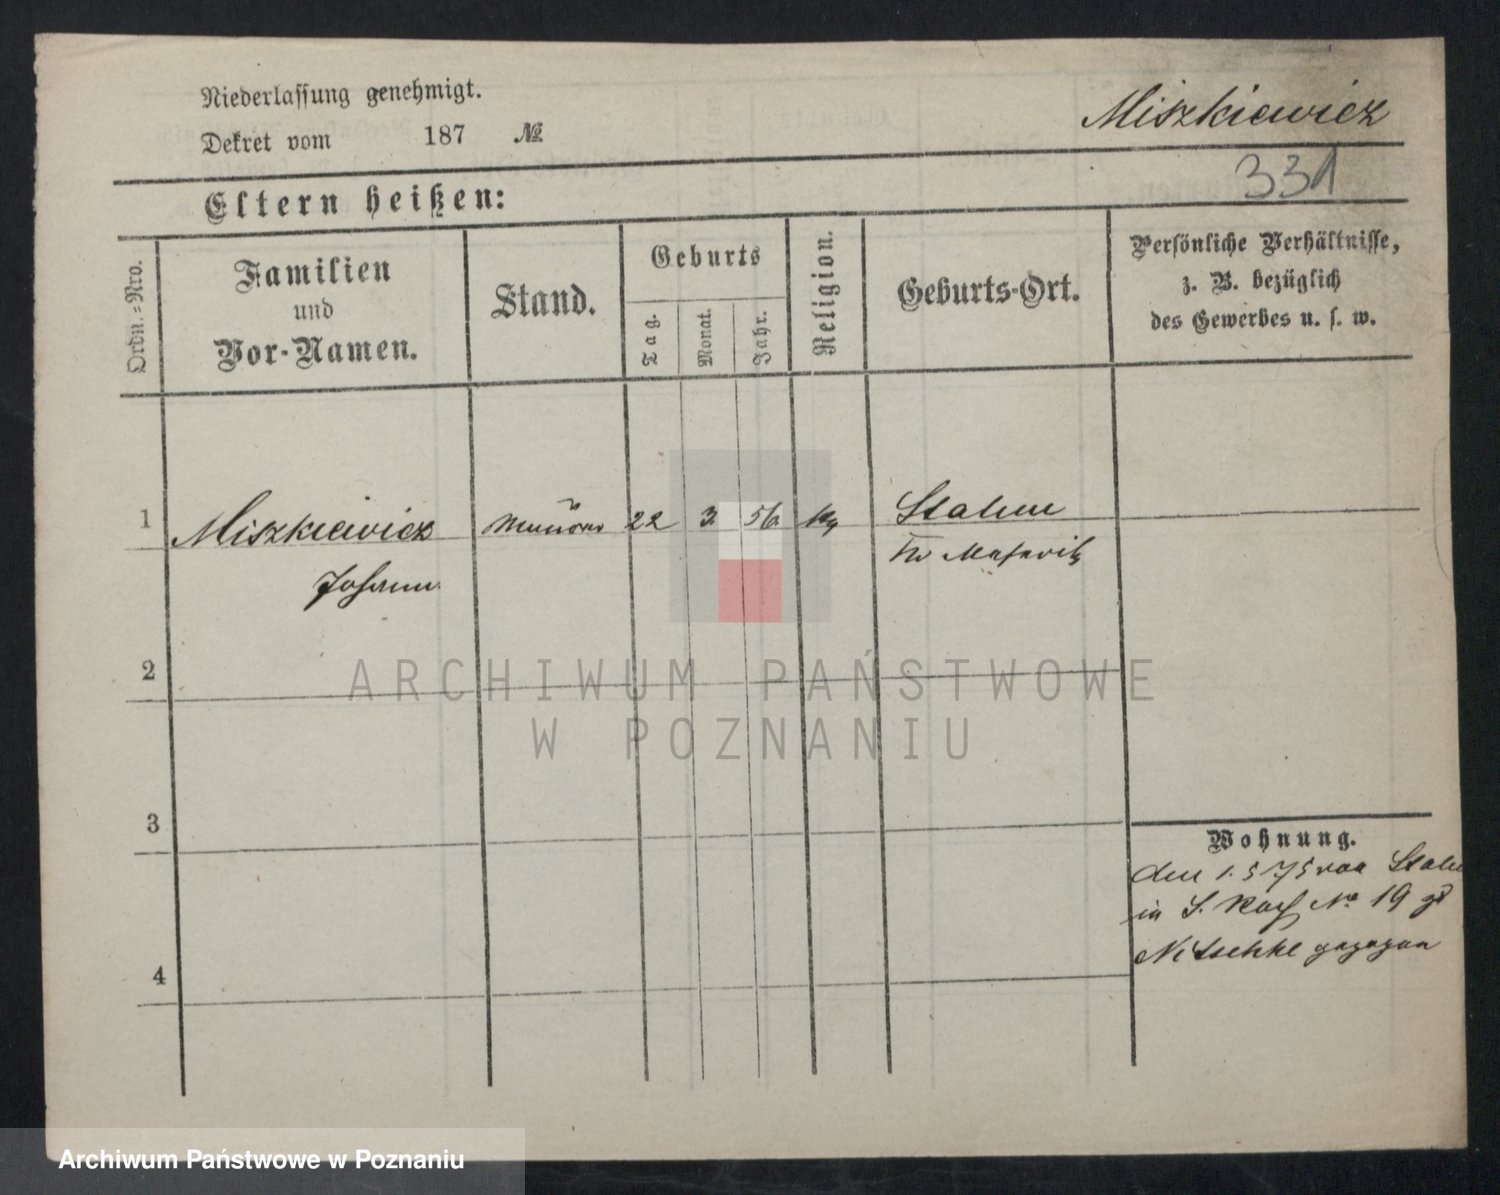 Niederlassung genehmigt.
Miszkiewicz
Dekret vom 187 №
331
Eltern heißen:
Ordn.-Nro.
Familien
und
Vor-Namen.
Stand.
Geburts
Tag.
Monat.
Jahr.
Religion.
Geburts-Ort.
Persönliche Verhältnisse,
z. B. bezüglich
des Gewerbes u. s. w.
1 Miszkiewicz 22 3 56
Johann
2
ARCHIWUM PAŃSTWOWE
W POZNANIU
3
Wohnung.
den 1. 5 75 von
in S. No 19
4
Nitschke gezogen
Archiwum Państwowe w Poznaniu